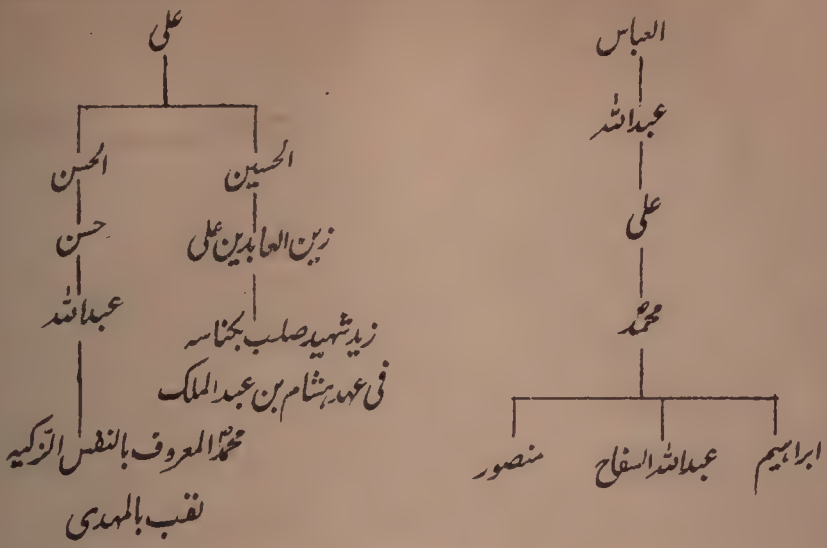 العباس
عبدالله
علی
محمدؐ
ابراہیم
عبدالله السفاح
منصور
علی
الحسین
الحسن
زین العابدین علی
حسن
زید شہید صلب بکناسہ
فی عہد ہشام بن عبد الملک
عبدالله
محمدؐ المعروف بالنفس الزّکیہ
نقب بالمہدی